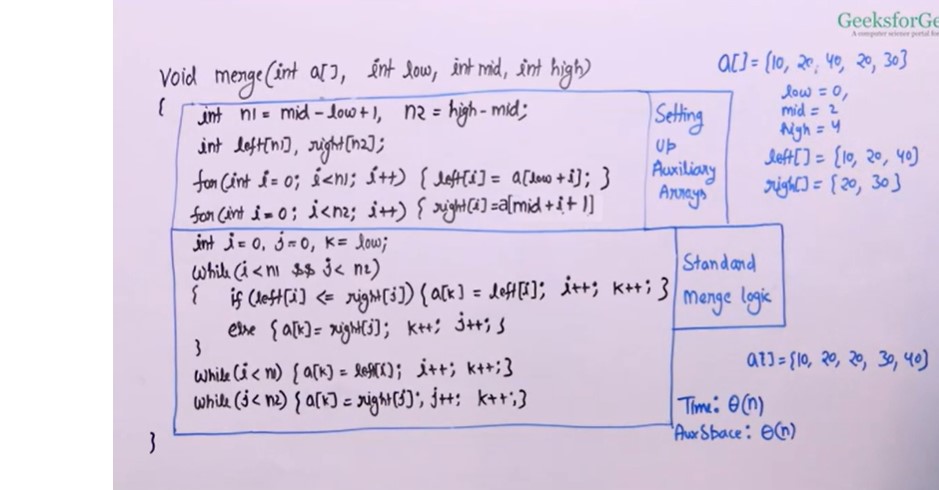 GeeksforGe
A computer science portal for
void merge(int a[], int low, int mid, int high)
{
int n1 = mid - low + 1, n2 = high - mid;
int left[n1], right[n2];
for(int i = 0; i < n1; i++) { left[i] = a[low + i]; }
for(int i = 0; i < n2; i++) { right[i] = a[mid + i + 1]
Setting
Up
Auxiliary
Arrays
int i = 0, j = 0, k = low;
while(i < n1 && j < n2)
{ if(left[i] <= right[j]) { a[k] = left[i]; i++; k++; }
else { a[k] = right[j]; k++; j++; }
}
while(i < n1) { a[k] = left[i]; i++; k++; }
while(j < n2) { a[k] = right[j]; j++; k++; }
}
Standard
Merge logic
a[] = {10, 20, 40, 20, 30}
low = 0,
mid = 2
high = 4
left[] = {10, 20, 40}
righ[] = {20, 30}
a[] = {10, 20, 20, 30, 40}
Time: Θ(n)
Aux Space: Θ(n)